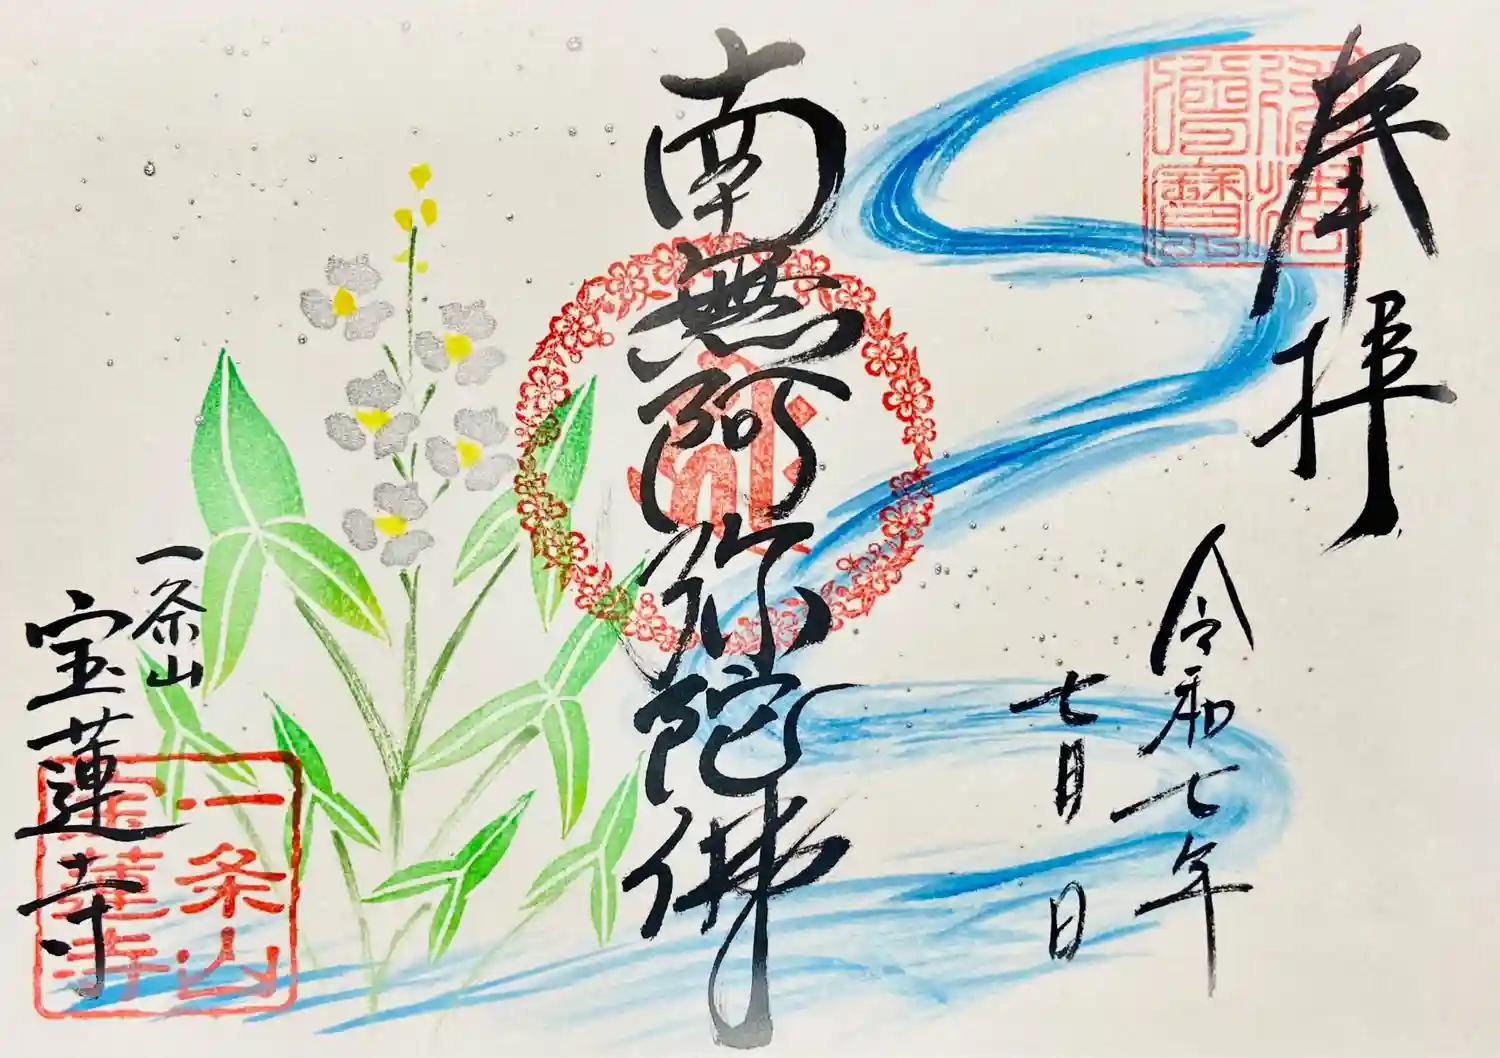 奉拝
令和七年
七月 日
南無阿弥陀佛
一条山
宝蓮寺
佛法僧寳
一条山
宝蓮寺